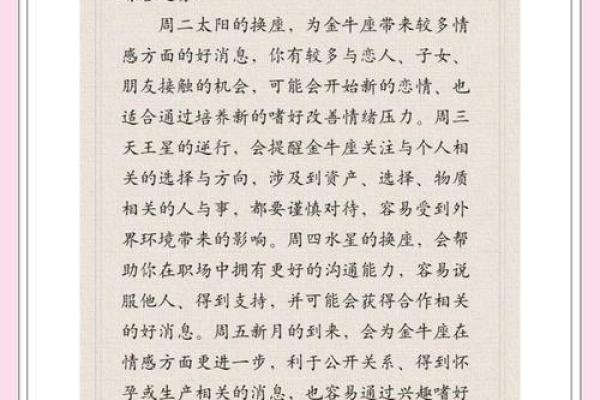 周二太阳的换座，为金牛座带来较多情
感方面的好消息，你有较多与恋人、子女、
朋友接触的机会，可能会开始新的恋情、也
适合通过培养新的嗜好改善情绪压力。周三
天王星的逆行，会提醒金牛座关注与个人相
关的选择与方向，涉及到资产、选择、物质
相关的人与事，都要谨慎对待，容易受到外
界环境带来的影响。周四水星的换座，会帮
助你在职场中拥有更好的沟通能力，容易说
服他人、得到支持，并可能会获得合作相关
的好消息。周五新月的到来，会为金牛座在
情感方面更进一步，利于公开关系、得到怀
孕或生产相关的消息，也容易通过兴趣嗜好